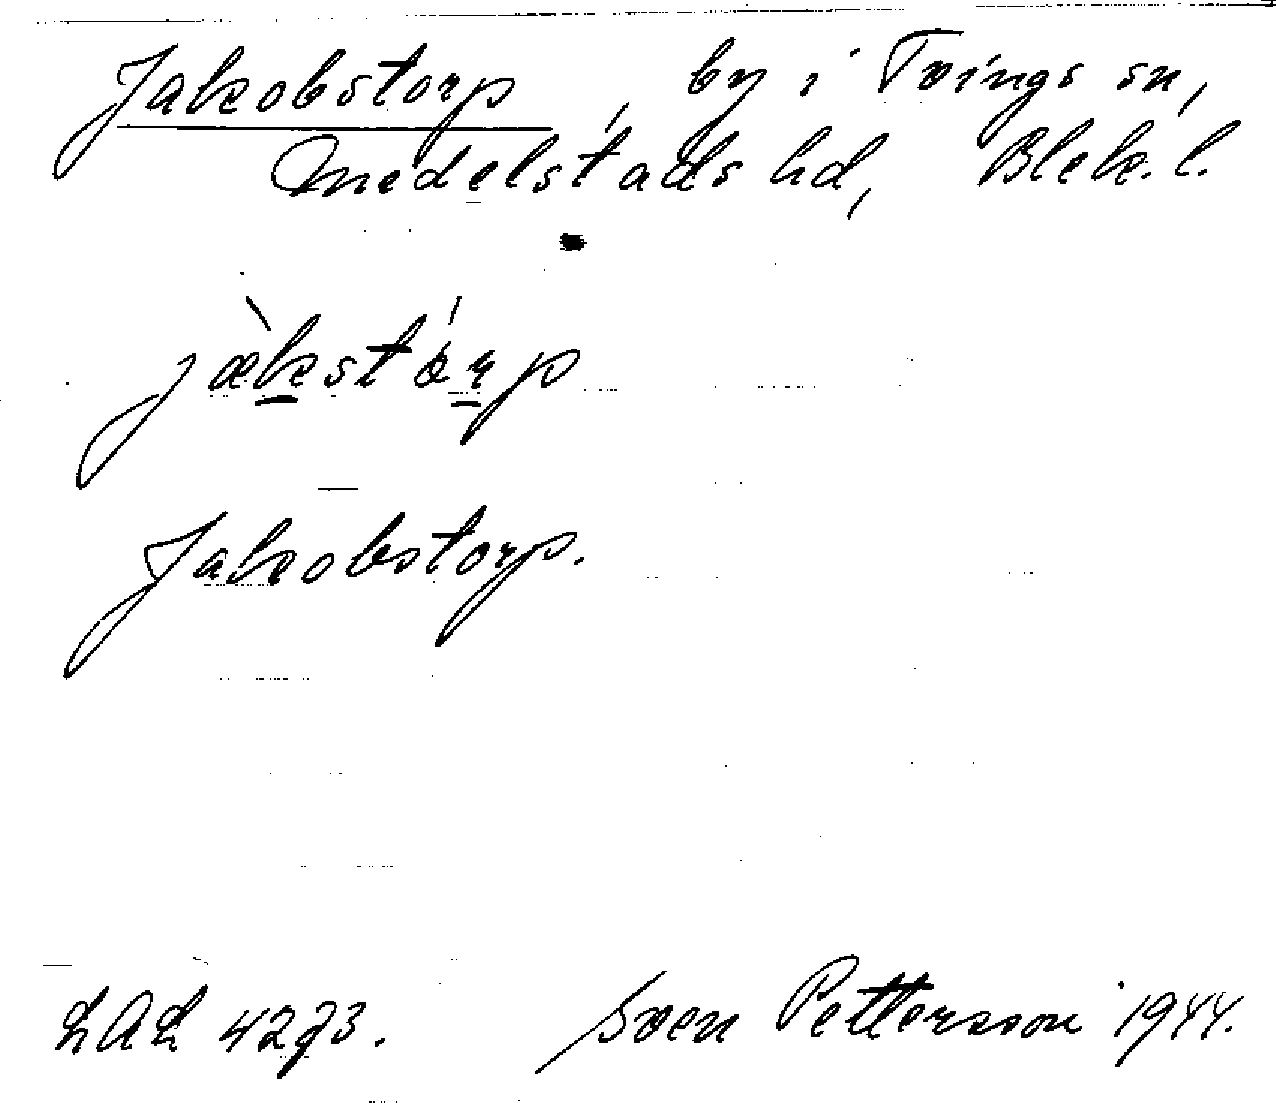 Jakobstorp, by i Tvings sn,
Medelstads hd, Blek. l.
jæ̀kstórp
Jakobstorp.
LAL 4273.
Sven Pettersson 1944.